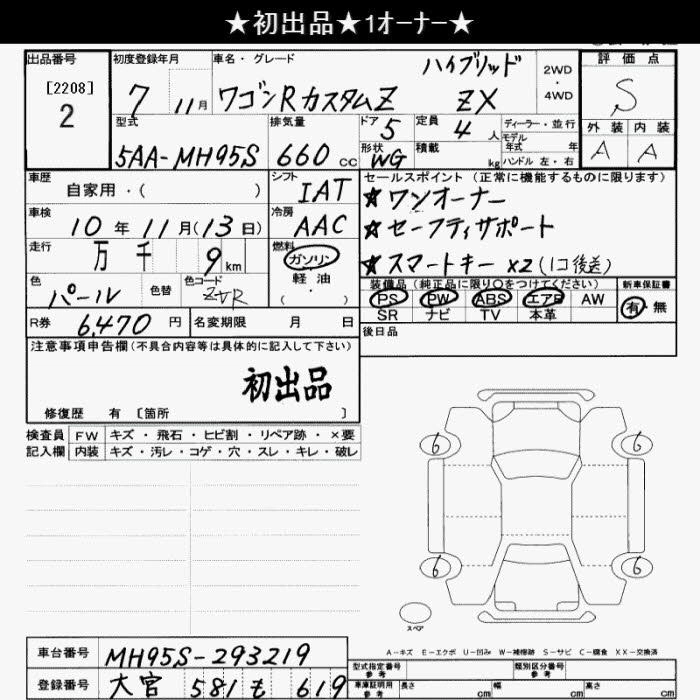 ★初出品★1オーナー★
出品番号 初度登録年月 車名・グレード ハイブリッド 2WD ・ 4WD 評価点
[2208] 2 7 11月 ワゴンRカスタムZ ZX S
型式 5AA-MH95S 排気量 660cc ドア 5 形状 WG 定員 4人 積載 kg ディーラー・並行 モデル年式 年 ハンドル 左・右 外装 A 内装 A
車歴 自家用・( ) シフト IAT セールスポイント(正常に機能するものに限ります)
★ワンオーナー
車検 10年11月(13日) 冷房 AAC ★セーフティサポート
走行 万 千 9km 燃料 ガソリン 軽油 ( ・ ) ★スマートキー x2(1コ後送)
色 パール 色替 色コード ZVR 装備品(純正品に限り○をつけてください) 新車保証書
PS PW ABS エアB AW 有・無
SR ナビ TV 本革
R券 6,470円 名変期限 月 日 後日品
注意事項申告欄(不具合内容等は具体的に記入して下さい)
初出品
修復歴 有 [箇所 ]
検査員 FW キズ・飛石・ヒビ割・リペア跡・×要
記入欄 内装 キズ・汚レ・コゲ・穴・スレ・キレ・破レ
6 6
6 6
スペア
A-キズ E-エクボ U-凹み W-補修跡 S-サビ C-腐食 XX-交換済
車台番号 MH95S-293219 型式指定番号 参考 類別区分番号 参考
登録番号 大宮 581 も 619 車庫証明用 参考 長さ cm 幅 cm 高さ cm